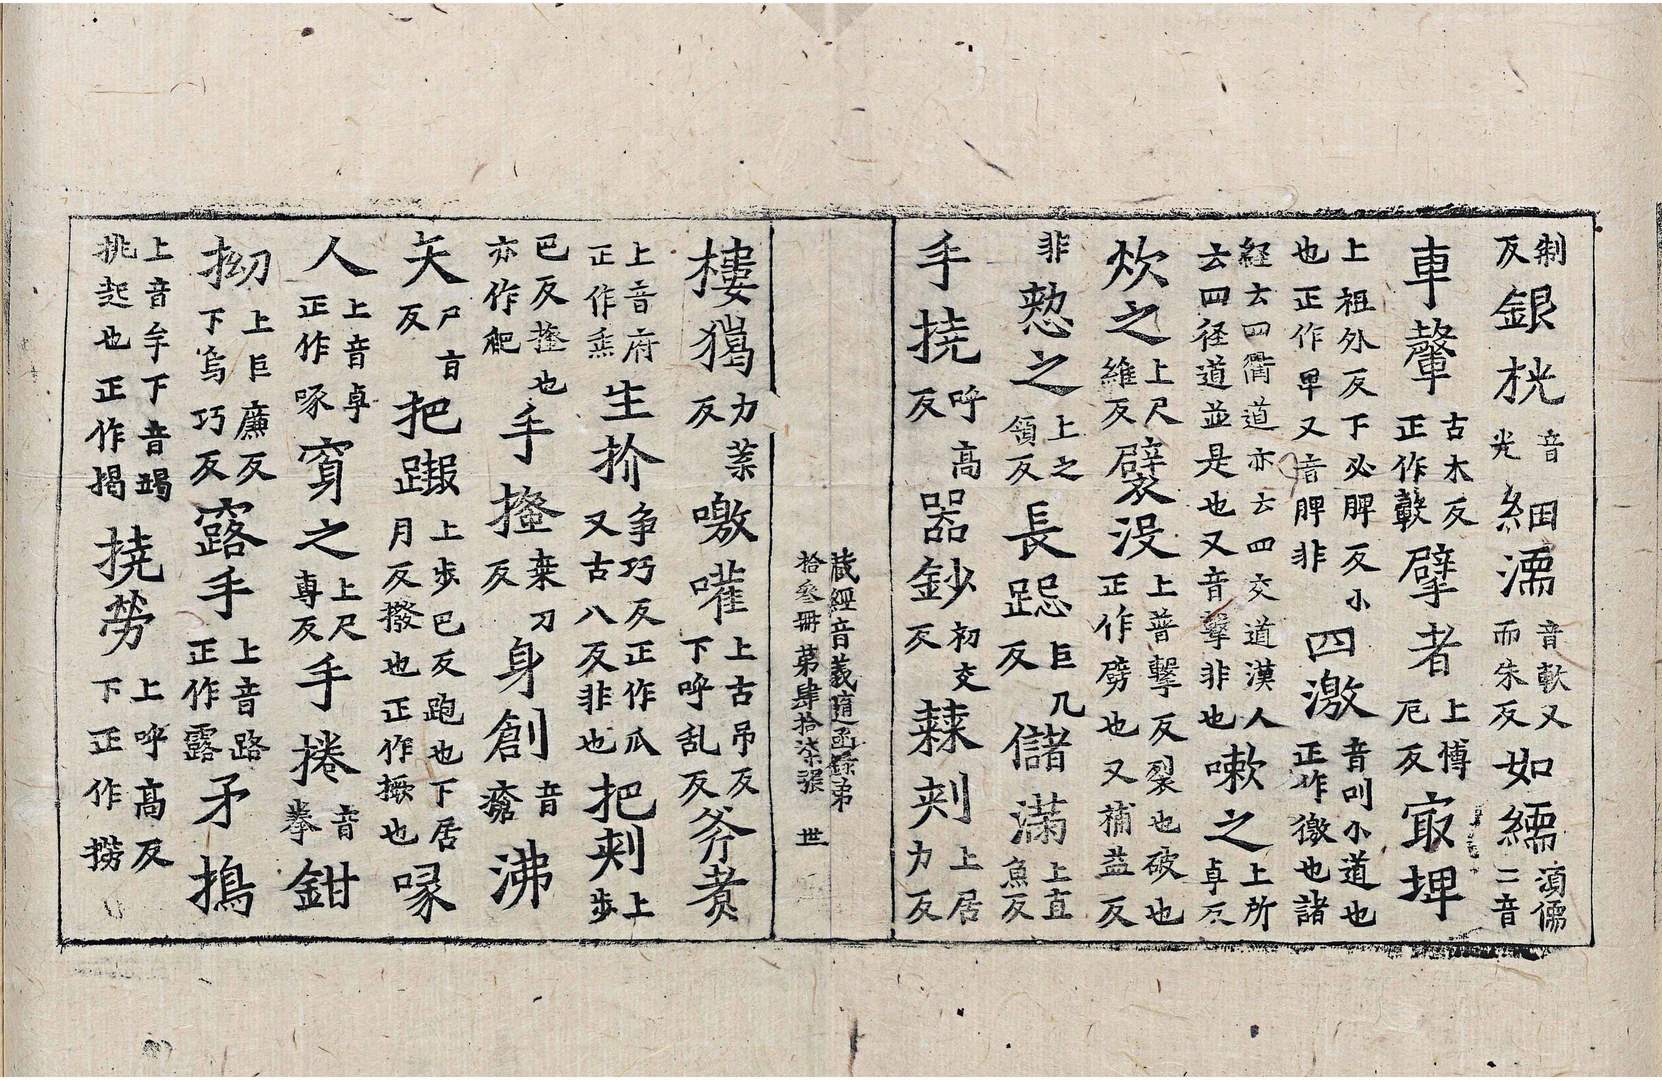 制反銀桄音光細濡音軟又而朱反如繻湏儒二音
車轚古木反正作轂擘者上博厄反㝡埤
上祖外反下必脾反小也正作卑又音脾非四激音叫小道也正作徼也諸
経云四衢道亦云四交道漢人云四径道並是也又音擊非也嗽之上所卓反
炊之上尺維反襞没上普擊反裂也破也正作劈也又補益反
非憗之上之領反長跽巨几反儲滿上直魚反
手撓呼高反器鈔初交反蕀刾上居力反
藏經音義隨函錄弟拾叁冊苐肆拾柒張 世
樓㹇力葉反噭嚾上古吊反下呼乱反斧䔇
上音府正作𤋱生扴争巧反正作爪又古八反非也把刾上步
巴反㩅也亦作爬手㩅桒刀反身創音瘡沸
矢尸㐭反把踧上步巴反跑也下居月反撥也正作撅也喙
人上音卓正作啄穿之上尺專反手捲音拳鉗
拗上巨廉反下烏巧反露手上音路正作露矛撝
上音牟下音竭挑起也正作揭撓勞上呼高反下正作撈